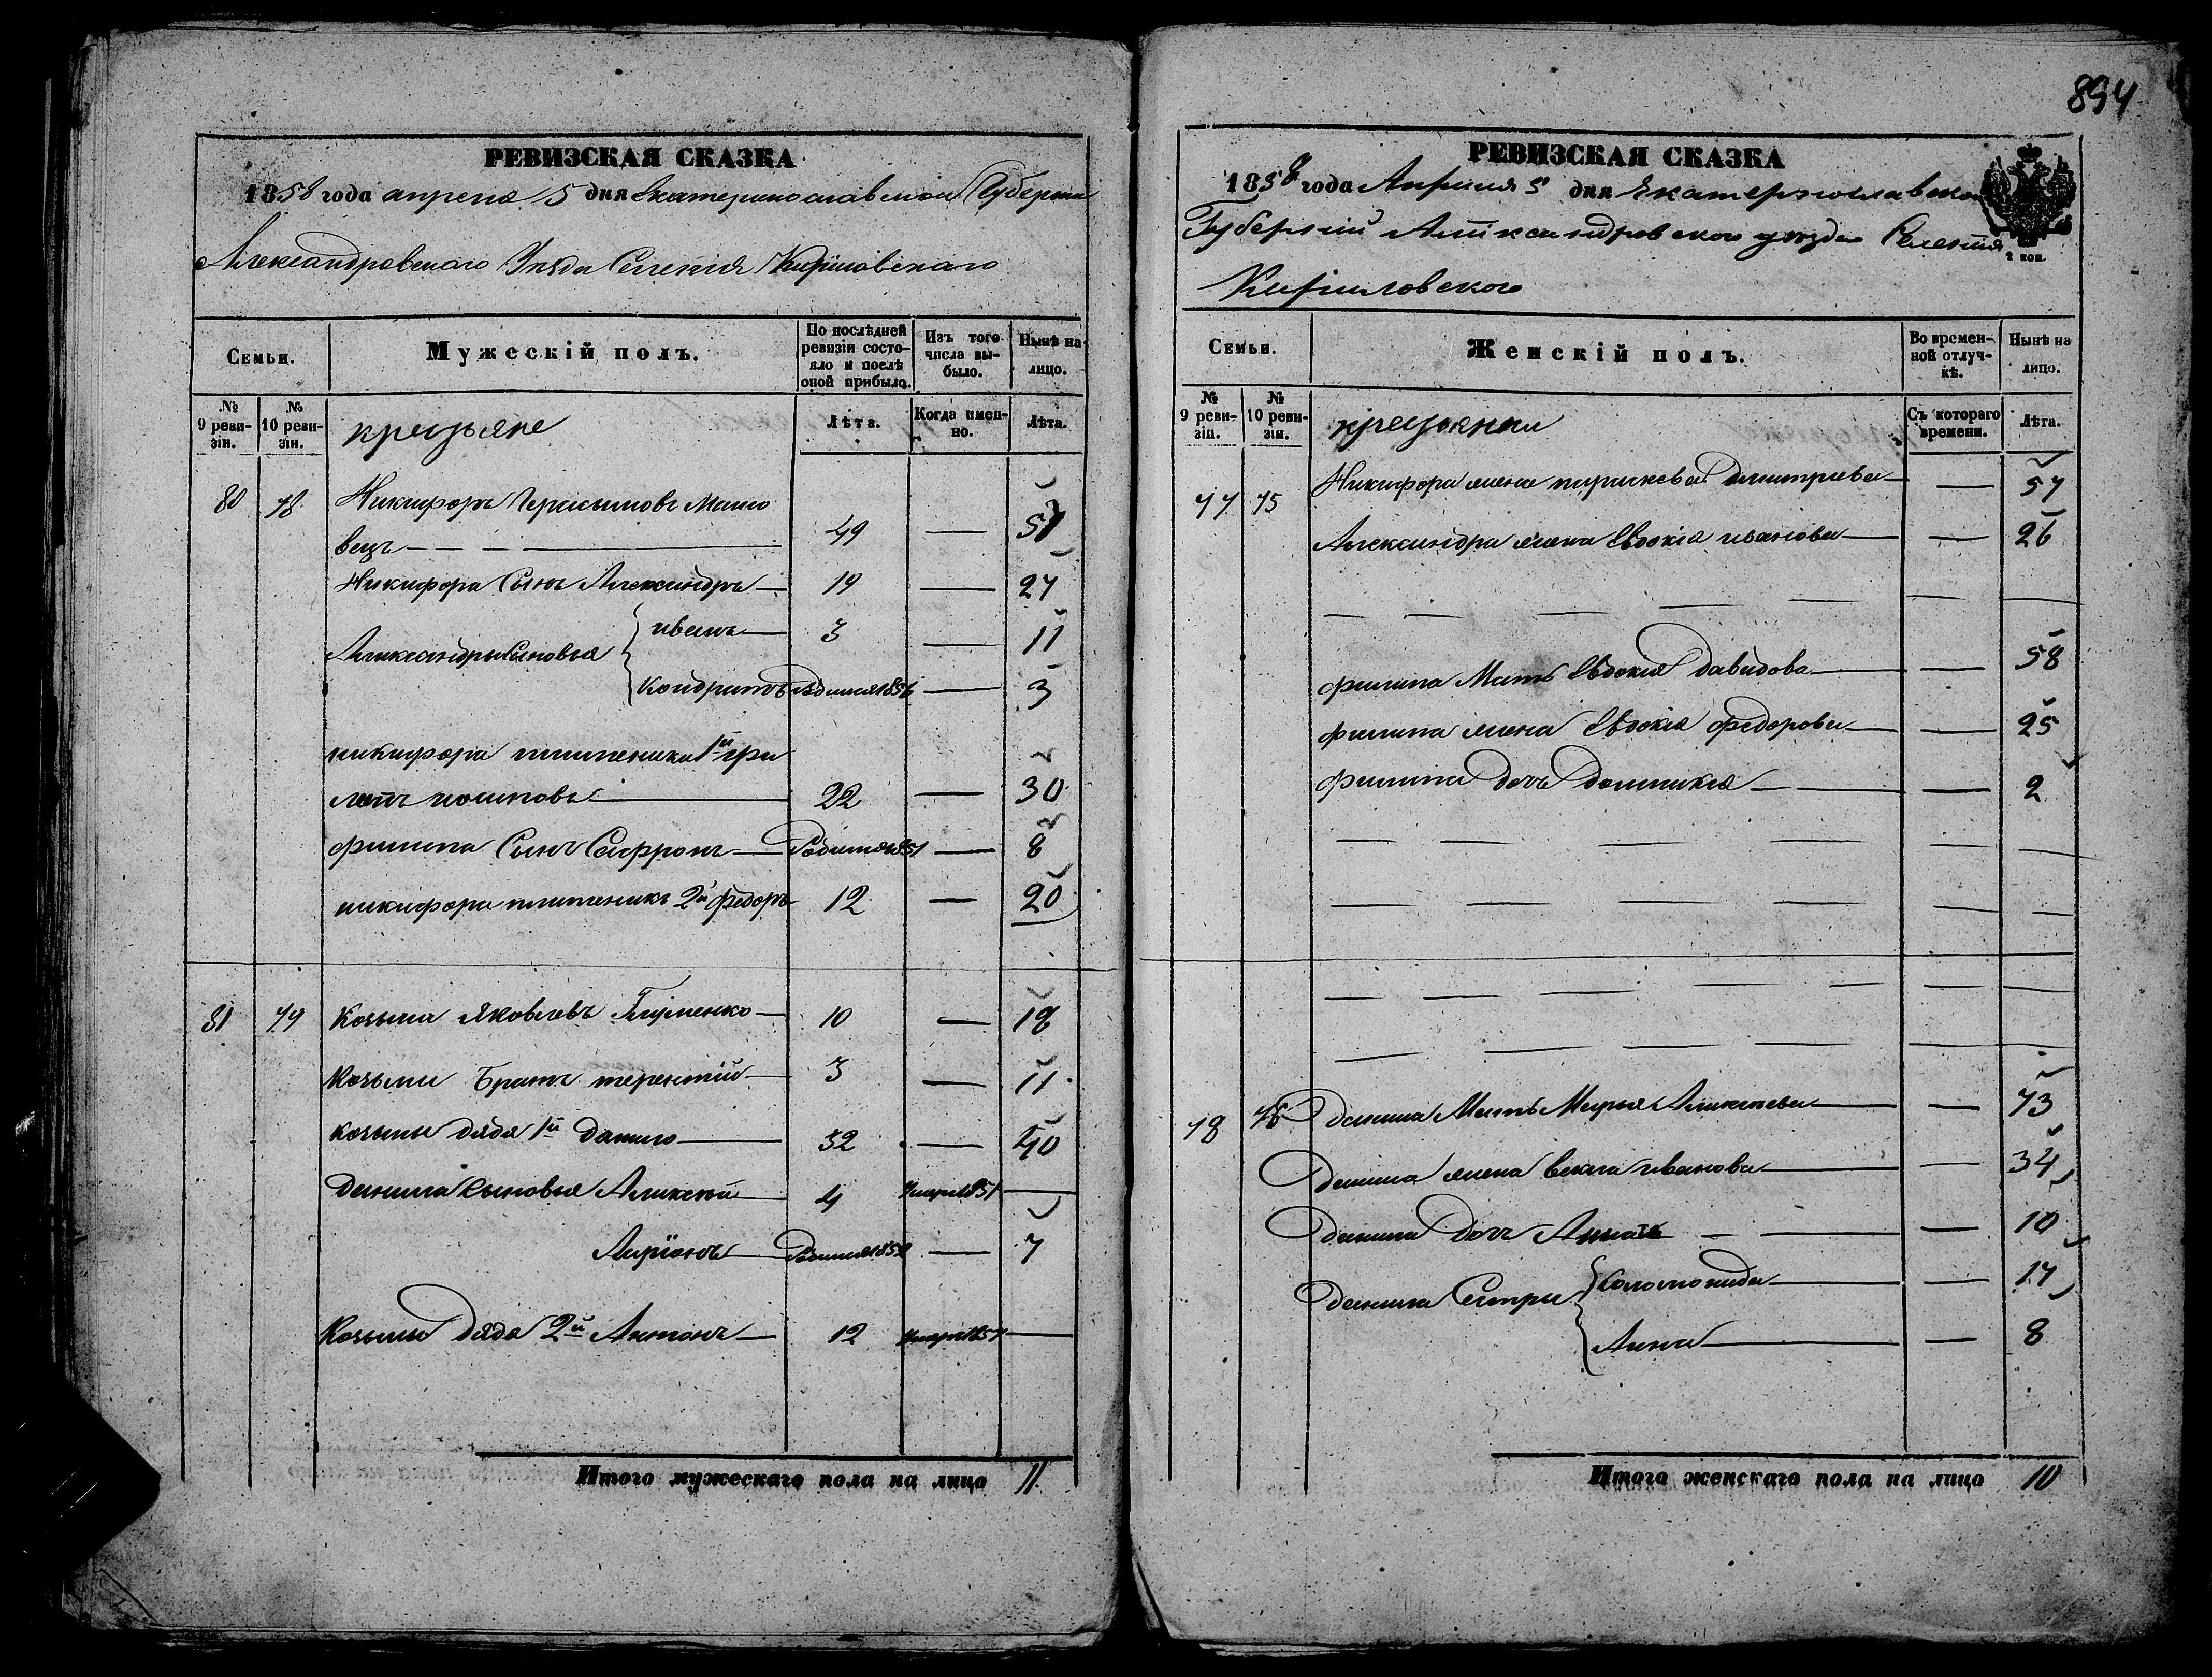 894
РЕВИЗСКАЯ СКАЗКА
1858 года апреля 5 дня Екатеринославской Губернии
Александровского Уезда Селения Кирилловского
Семьи.
Мужескій полъ.
По послѣдней ревизіи состояло и послѣ оной прибыло.
Изъ того числа выбыло.
Нынѣ на лицо.
№ 9 ревизіи.
№ 10 ревизіи.
крестьяне
Лѣта.
Когда именно.
Лѣта.
80 78 Никифоръ Герасимовъ
вецъ — 49 — 57
Никифора Сынъ Александръ — 19 — 27
Александра Сыновья иванъ — 3 — 11
Кондратъ родился 1856 — 3
никифора племеники 1й фи
липъ — 22 — 30
филипа Сынъ Сафронъ — Родился 1851 — 8
никифора племеникъ 2й федоръ 12 — 20
81 79 Козьма Яковлевъ — 10 — 18
Козьмы Братъ терентій — 3 — 11
козьмы дядя 1й данило — 32 — 40
данила сыновья Аликсей — 4 умеръ 1851 —
Ларіонъ — Родился 1852 — 7
Козьмы дядя 2й Антонъ — 12 умеръ 1857 —
Итого мужескаго пола на лицо 11.
РЕВИЗСКАЯ СКАЗКА
1858 года Апреля 5 дня Екатеринославской
Губерніи Александровского уезда Селенія
2 коп.
Кирилловского
Семьи.
Женскій полъ.
Во временной отлучкѣ.
Нынѣ на лицо.
№ 9 ревизіи.
№ 10 ревизіи.
крестьянки
Съ котораго времени.
Лѣта.
77 75 Никифора жена параскева Димитріева — — 57
Александра жена Евдокія иванова — — 26
филипа Мать Евдокія давидова — — 58
филипа жена Евдокія федорова — — 25
филипа дочь домникія — — 2
78 76 данила Мать Марья Аликсеева — — 73
данила жена векла иванова — — 34
данила дочь — — 10
данила Сестры Соломонида — — 17
Анна — — 8
Итого женскаго пола на лицо 10